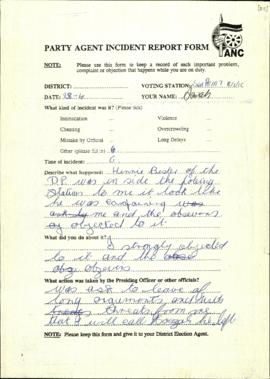 PARTY AGENT INCIDENT REPORT FORM
ANC
NOTE: Please use this form to keep a record of each important problem,
complaint or objection that happens while you are on duty.
DISTRICT: VOTING STATION:
DATE: YOUR NAME:
What kind of incident was it? (Please tick)
Intimidation ... Violence ...
Cheating ... Overcrowding ...
Mistake by Official ... Long Delays ...
Other (please fill in)
Time of incident:
Describe what happened: Hennie Bester of the
DP was in side the poling
Station to me it look like
he was campaining was
ask by me and the observers
objected to it
What did you do about it?
I strongly objected
to it and the
obs observers
What action was taken by the Presiding Officer or other officials?
Was ask to leave after
long arguments and with
threats from me
that I will call he left
NOTE: Please keep this form and give it to your District Election Agent.